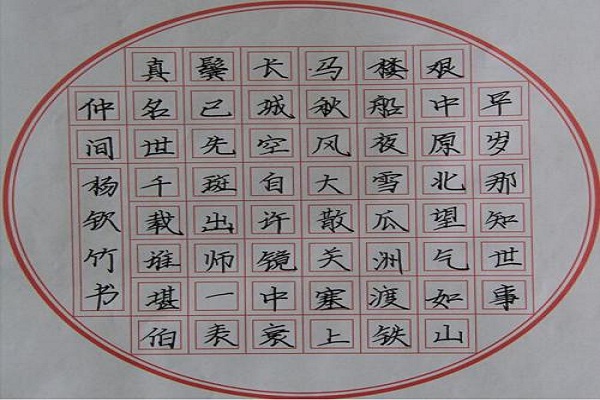 早岁那知世事
艰中原北望气如山
楼船夜雪瓜洲渡铁
马秋风大散关塞上
长城空自许镜中衰
鬓已先斑出师一表
真名世千载堆堪伯
仲间
杨钦竹书